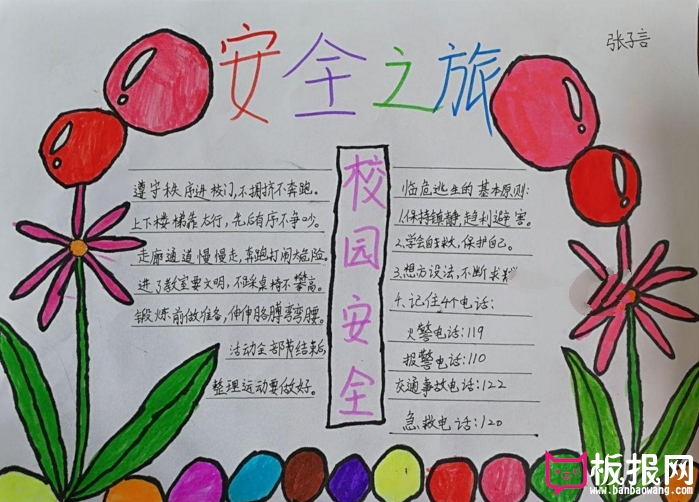 安全之旅
张子言
遵守秩序进校门,不拥挤不奔跑。
上下楼梯靠右行,先后有序不争吵。
走廊通道慢慢走,奔跑打闹太危险。
进了教室要文明,不踩桌椅不攀高。
锻炼前做准备,伸伸胳膊弯弯腰。
活动全部都结束后,
整理运动要做好。
校园安全
临危逃生的基本原则:
1.保持镇静,趋利避害。
2.学会自救,保护自己。
3.想方设法,不断求救
4.记住4个电话:
火警电话:119
报警电话:110
交通事故电话:122
急救电话:120
板报网
www.banbaowang.com